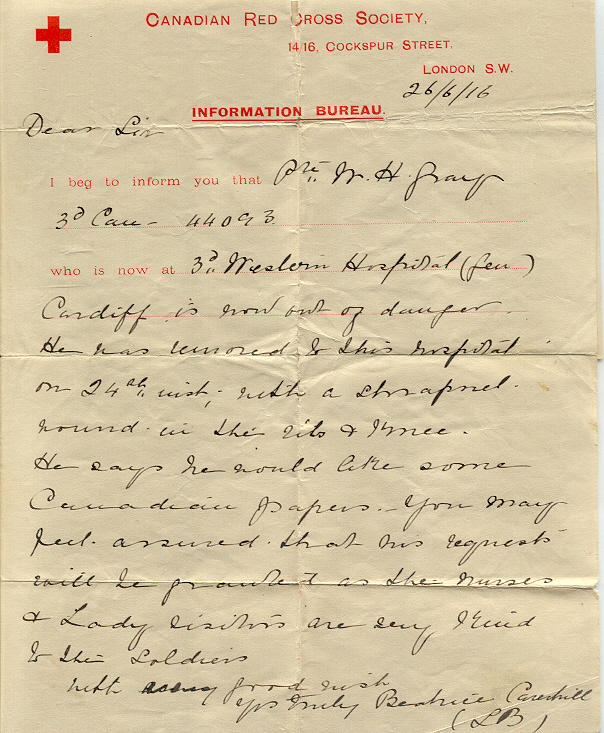 CANADIAN RED CROSS SOCIETY,
14/16, COCKSPUR STREET.
LONDON S.W.
26/6/16
INFORMATION BUREAU.
Dear Sir
I beg to inform you that Pte. W. H. Gray
3d Can - 44093
who is now at 3d Western Hospital (Gen)
Cardiff is now out of danger.
He was removed to this hospital
on 24th inst; with a shrapnel
wound in the ribs & knee.
He says he would like some
Canadian papers. - You may
feel assured that his requests
will be granted as the nurses
& Lady visitors are very kind
to the soldiers
with every good wish
Yrs truly Beatrice
(LB)